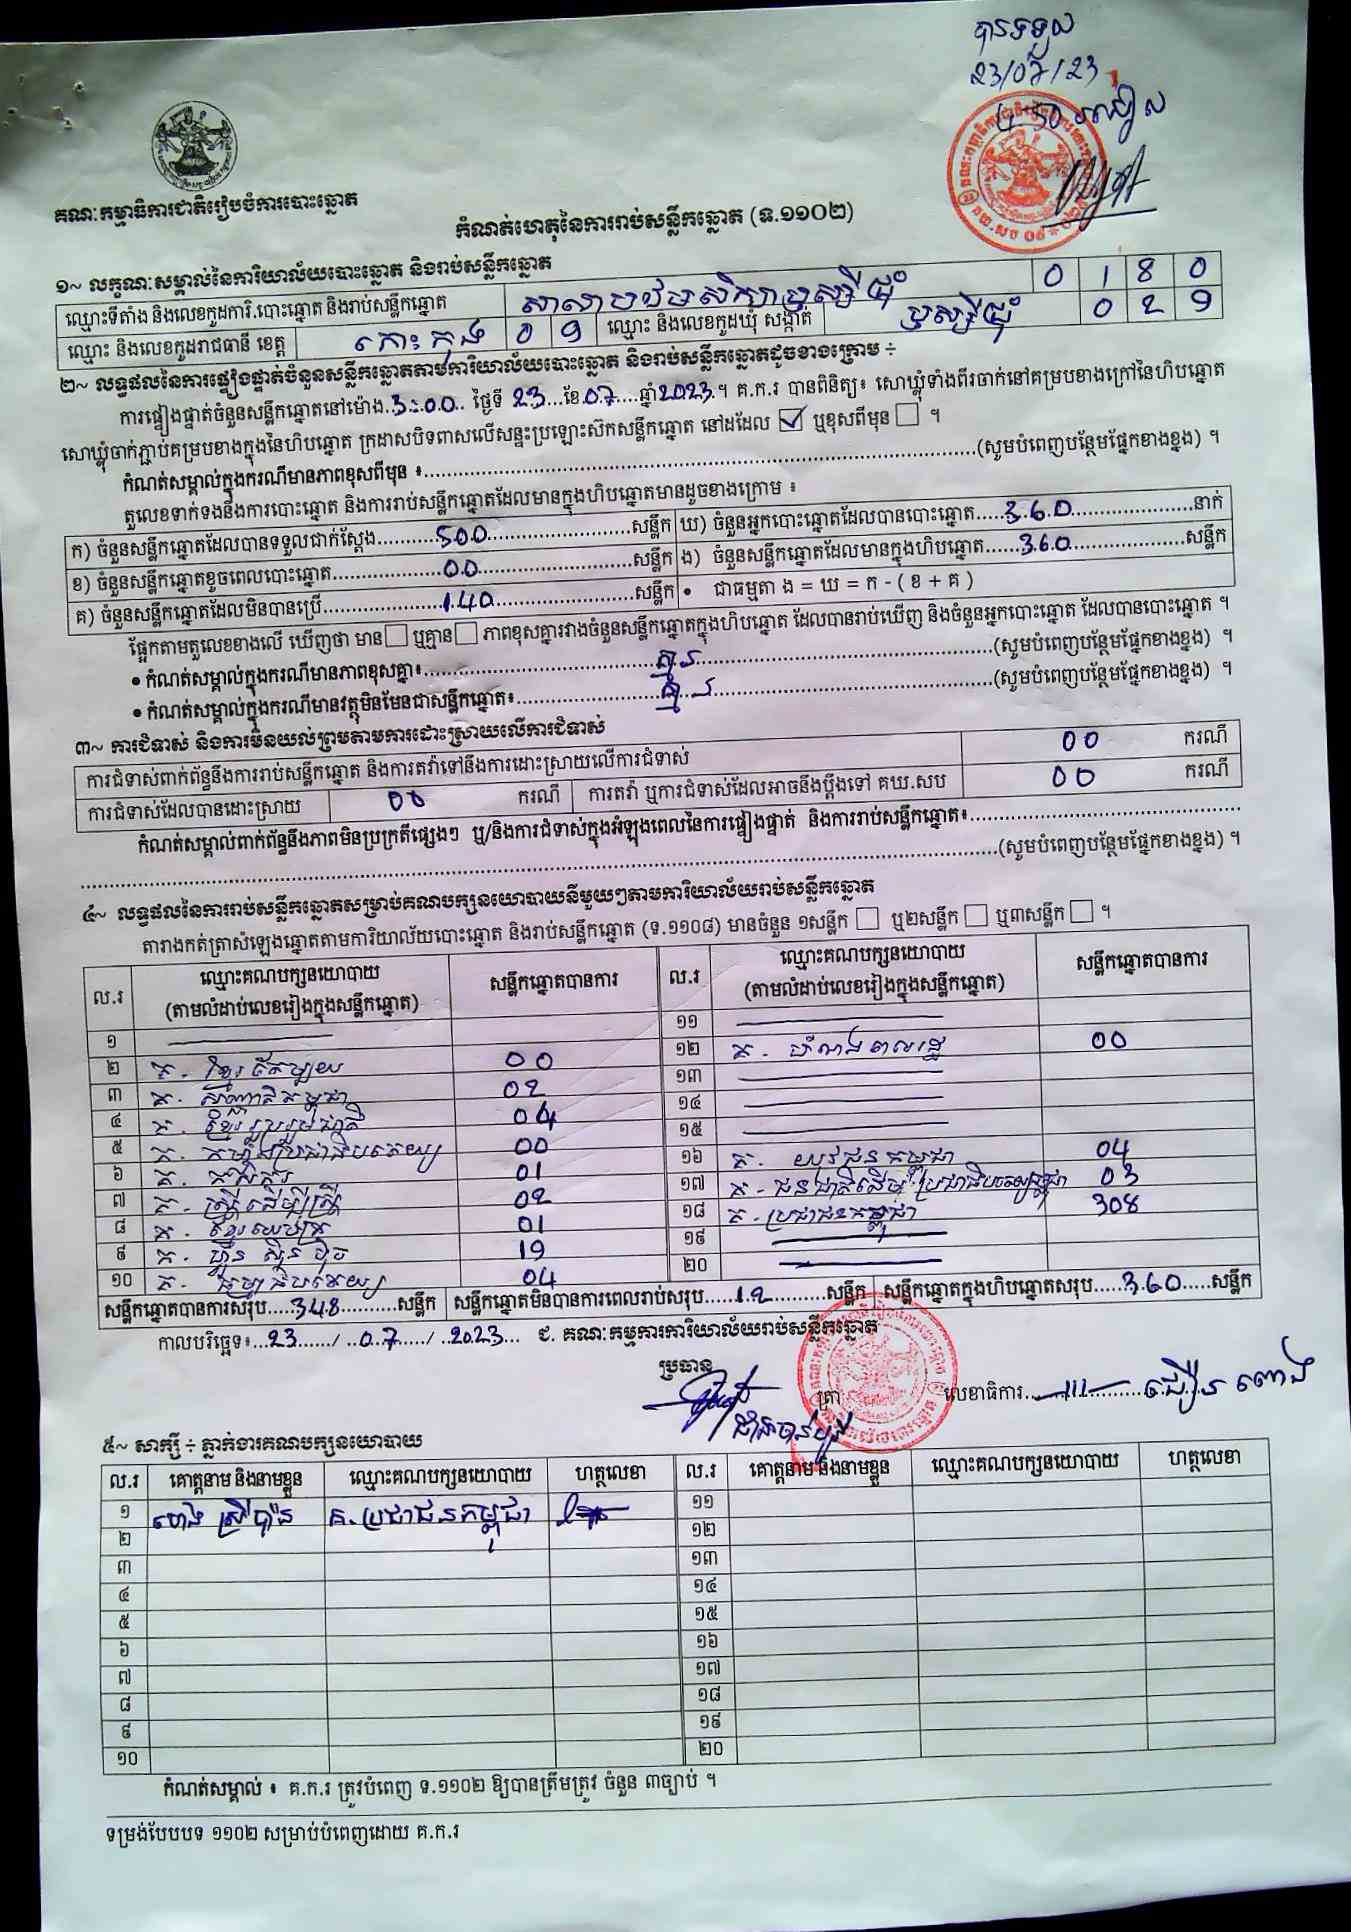 បានទទួល
23/07/23
គណៈកម្មាធិការជាតិរៀបចំការបោះឆ្នោត
កំណត់ហេតុនៃការរាប់សន្លឹកឆ្នោត (ទ.១១០២)
១~ លក្ខណៈសម្គាល់នៃការិយាល័យបោះឆ្នោត និងរាប់សន្លឹកឆ្នោត
ឈ្មោះទីតាំង និងលេខកូដការិ.បោះឆ្នោត និងរាប់សន្លឹកឆ្នោត សាលាបឋមសិក្សាឫស្សីជ្រុំ 0 1 8 0
ឈ្មោះ និងលេខកូដរាជធានី ខេត្ត កោះកុង 0 9 ឈ្មោះ និងលេខកូដឃុំ សង្កាត់ ឫស្សីជ្រុំ 0 2 9
២~ លទ្ធផលនៃការផ្ទៀងផ្ទាត់ចំនួនសន្លឹកឆ្នោតតាមការិយាល័យបោះឆ្នោត និងរាប់សន្លឹកឆ្នោតដូចខាងក្រោម ÷
ការផ្ទៀងផ្ទាត់ចំនួនសន្លឹកឆ្នោតនៅម៉ោង 3:00 ថ្ងៃទី 23 ខែ 07 ឆ្នាំ 2023 ។ គ.ក.រ បានពិនិត្យ៖ សោឃ្លុំទាំងពីរចាក់នៅគម្របខាងក្រៅនៃហិបឆ្នោត
សោឃ្លុំចាក់ភ្ជាប់គម្របខាងក្នុងនៃហិបឆ្នោត ក្រដាសបិទពាសលើសន្ទះប្រឡោះស៊កសន្លឹកឆ្នោត នៅដដែល ☑ ឬខុសពីមុន ☐ ។
កំណត់សម្គាល់ក្នុងករណីមានភាពខុសពីមុន ៖ (សូមបំពេញបន្ថែមផ្នែកខាងខ្នង) ។
តួលេខទាក់ទងនឹងការបោះឆ្នោត និងការរាប់សន្លឹកឆ្នោតដែលមានក្នុងហិបឆ្នោតមានដូចខាងក្រោម ៖
ក) ចំនួនសន្លឹកឆ្នោតដែលបានទទួលជាក់ស្តែង 500 សន្លឹក ឃ) ចំនួនអ្នកបោះឆ្នោតដែលបានបោះឆ្នោត 360 នាក់
ខ) ចំនួនសន្លឹកឆ្នោតខូចពេលបោះឆ្នោត 00 សន្លឹក ង) ចំនួនសន្លឹកឆ្នោតដែលមានក្នុងហិបឆ្នោត 360 សន្លឹក
គ) ចំនួនសន្លឹកឆ្នោតដែលមិនបានប្រើ 140 សន្លឹក • ជាធម្មតា ង = ឃ = ក - ( ខ + គ )
ផ្អែកតាមតួលេខខាងលើ ឃើញថា មាន ☐ ឬគ្មាន ☐ ភាពខុសគ្នារវាងចំនួនសន្លឹកឆ្នោតក្នុងហិបឆ្នោត ដែលបានរាប់ឃើញ និងចំនួនអ្នកបោះឆ្នោត ដែលបានបោះឆ្នោត ។
• កំណត់សម្គាល់ក្នុងករណីមានភាពខុសគ្នា៖ គ្មាន (សូមបំពេញបន្ថែមផ្នែកខាងខ្នង) ។
• កំណត់សម្គាល់ក្នុងករណីមានវត្ថុមិនមែនជាសន្លឹកឆ្នោត៖ គ្មាន (សូមបំពេញបន្ថែមផ្នែកខាងខ្នង) ។
៣~ ការជំទាស់ និងការមិនយល់ព្រមតាមការដោះស្រាយលើការជំទាស់
ការជំទាស់ពាក់ព័ន្ធនឹងការរាប់សន្លឹកឆ្នោត និងការតវ៉ាទៅនឹងការដោះស្រាយលើការជំទាស់ 00 ករណី
ការជំទាស់ដែលបានដោះស្រាយ 00 ករណី ការតវ៉ា ឬការជំទាស់ដែលអាចនឹងប្តឹងទៅ គឃ.សប 00 ករណី
កំណត់សម្គាល់ពាក់ព័ន្ធនឹងភាពមិនប្រក្រតីផ្សេងៗ ឬ/និងការជំទាស់ក្នុងអំឡុងពេលនៃការផ្ទៀងផ្ទាត់ និងការរាប់សន្លឹកឆ្នោត៖
(សូមបំពេញបន្ថែមផ្នែកខាងខ្នង) ។
៤~ លទ្ធផលនៃការរាប់សន្លឹកឆ្នោតសម្រាប់គណបក្សនយោបាយនីមួយៗតាមការិយាល័យរាប់សន្លឹកឆ្នោត
តារាងកត់ត្រាសំឡេងឆ្នោតតាមការិយាល័យបោះឆ្នោត និងរាប់សន្លឹកឆ្នោត (ទ.១១០៨) មានចំនួន ១សន្លឹក ☐ ឬ២សន្លឹក ☐ ឬ៣សន្លឹក ☐ ។
ល.រ ឈ្មោះគណបក្សនយោបាយ (តាមលំដាប់លេខរៀងក្នុងសន្លឹកឆ្នោត) សន្លឹកឆ្នោតបានការ ល.រ ឈ្មោះគណបក្សនយោបាយ (តាមលំដាប់លេខរៀងក្នុងសន្លឹកឆ្នោត) សន្លឹកឆ្នោតបានការ
១ ១១
២ គ. ខ្មែរតែមួយ 00 ១២ គ. បំណងពលរដ្ឋ 00
៣ គ. សញ្ជាតិកម្ពុជា 02 ១៣
៤ គ. ខ្មែររួបរួមជាតិ 04 ១៤
៥ គ. កម្លាំងប្រជាធិបតេយ្យ 00 ១៥
៦ គ. កសិករ 01 ១៦ គ. យុវជនកម្ពុជា 04
៧ គ. ស្ត្រីដើម្បីស្ត្រី 02 ១៧ គ. ជនជាតិដើមប្រជាធិបតេយ្យកម្ពុជា 03
៨ គ. ខ្មែរឈប់ក្រ 01 ១៨ គ. ប្រជាជនកម្ពុជា 308
៩ គ. ហ្វ៊ុនស៊ិនប៉ិច 19 ១៩
១០ គ. ធម្មាធិបតេយ្យ 04 ២០
សន្លឹកឆ្នោតបានការសរុប 348 សន្លឹក សន្លឹកឆ្នោតមិនបានការពេលរាប់សរុប 12 សន្លឹក សន្លឹកឆ្នោតក្នុងហិបឆ្នោតសរុប 360 សន្លឹក
កាលបរិច្ឆេទ៖ 23 / 07 / 2023 ជ. គណៈកម្មការការិយាល័យរាប់សន្លឹកឆ្នោត
ប្រធាន
ត្រា លេខាធិការ
៥~ សាក្សី ÷ ភ្នាក់ងារគណបក្សនយោបាយ
ល.រ គោត្តនាម និងនាមខ្លួន ឈ្មោះគណបក្សនយោបាយ ហត្ថលេខា ល.រ គោត្តនាម និងនាមខ្លួន ឈ្មោះគណបក្សនយោបាយ ហត្ថលេខា
១ គ. ប្រជាជនកម្ពុជា ១១
២ ១២
៣ ១៣
៤ ១៤
៥ ១៥
៦ ១៦
៧ ១៧
៨ ១៨
៩ ១៩
១០ ២០
កំណត់សម្គាល់ ៖ គ.ក.រ ត្រូវបំពេញ ទ.១១០២ ឱ្យបានត្រឹមត្រូវ ចំនួន ៣ច្បាប់ ។
ទម្រង់បែបបទ ១១០២ សម្រាប់បំពេញដោយ គ.ក.រ